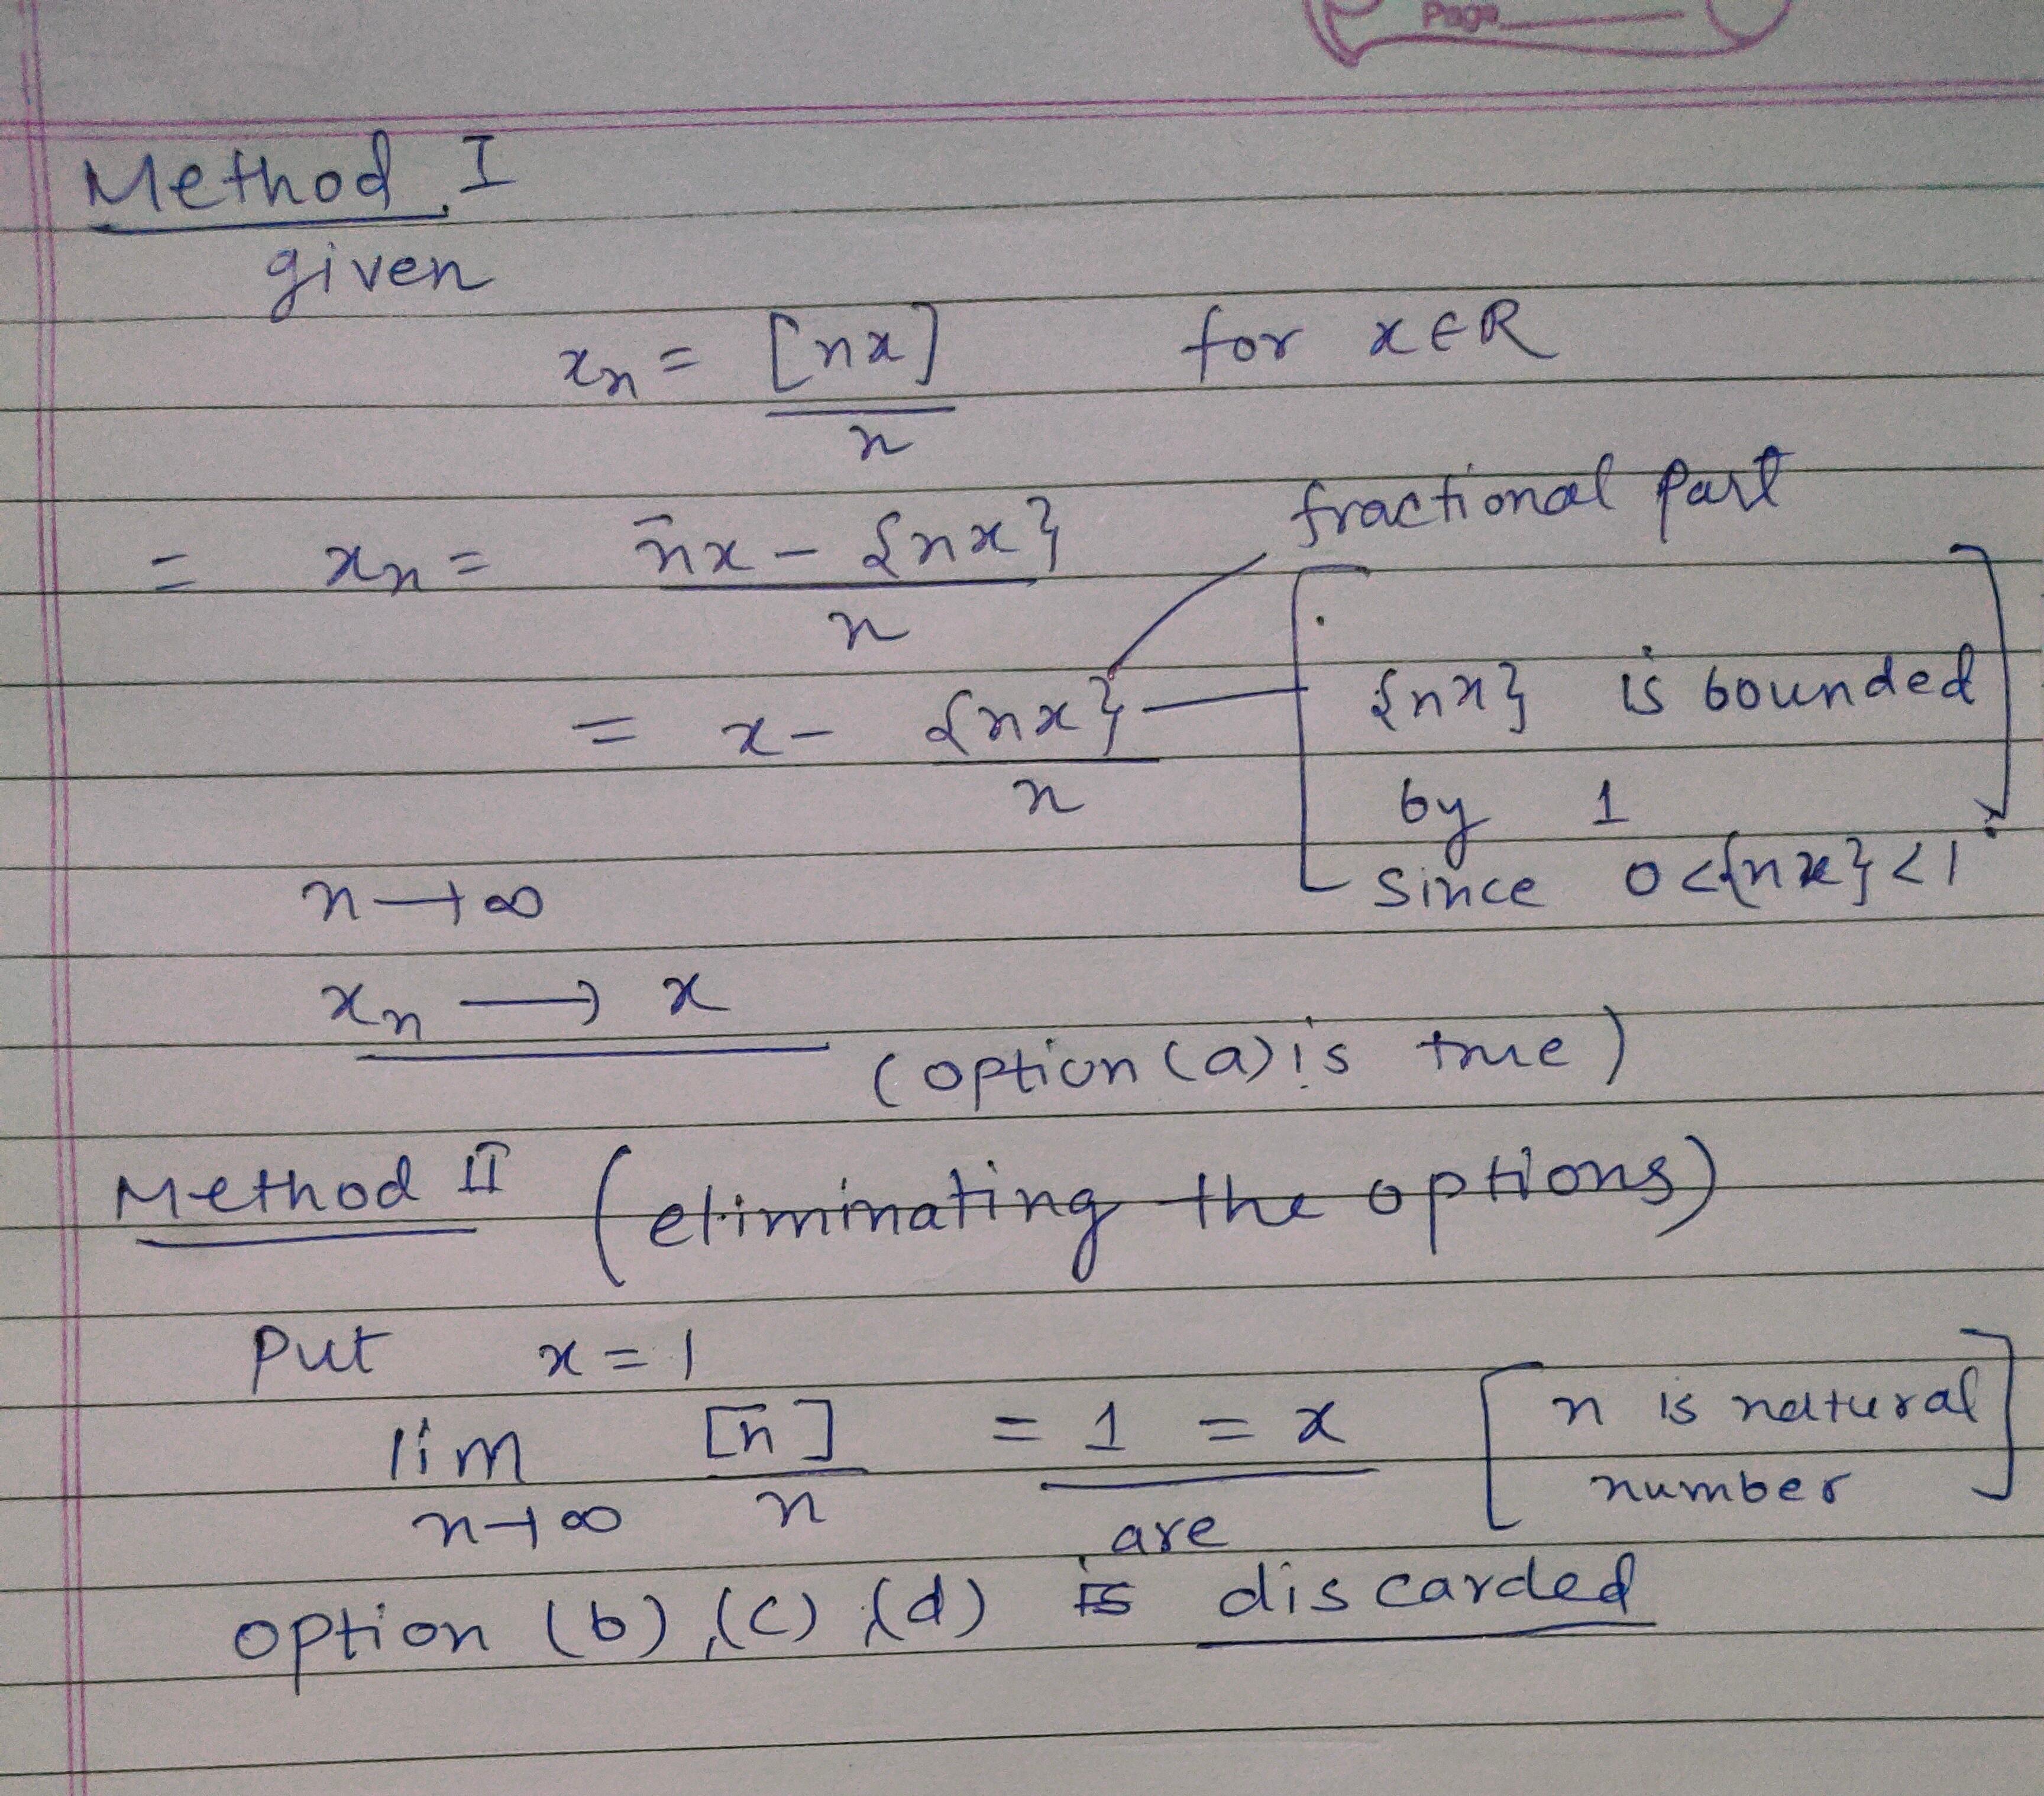 Page
Method I
given
xₙ = [nx] / n for x ∈ R
= xₙ = nx - {nx} / n
fractional part
= x - {nx} / n
{nx} is bounded
by 1
since 0 < {nx} < 1
n → ∞
xₙ → x
(option (a) is true)
Method II (eliminating the options)
Put x = 1
lim n→∞ [n] / n = 1 = x
n is natural
number
option (b), (c), (d) are discarded